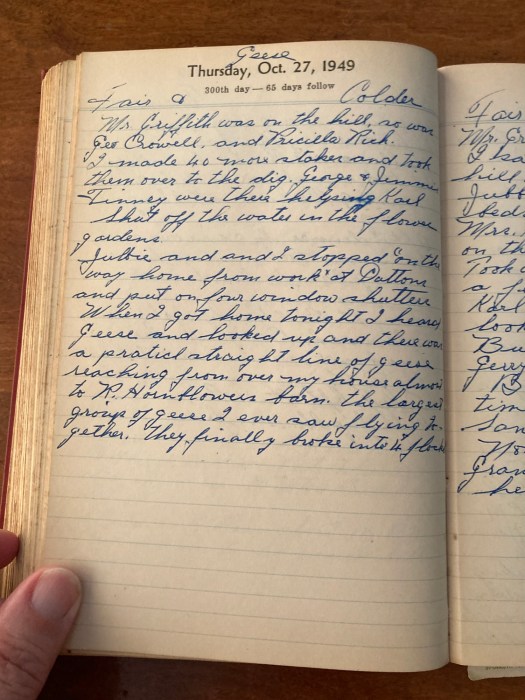 Geese
Thursday, Oct. 27, 1949
300th day — 65 days follow
Fair & Colder
Mr. Griffith was on the hill, so was
Geo Crowell, and Pricilla Rich.
I made 40 more stakes and took
them over to the dig. George & Jimmie
Tinney were there helping Karl
shut off the water in the flower
gardens
Julbie and and I stopped "on the
way home from work" at Dattons
and put on four window shutters
When I got home tonight I heard
geese and looked up and there was
a praticl straight line of geese
reaching from over my house almost
to R. Hornblowers barn. the largest
group of geese I ever saw flying to-
gether. they finally broke into 4 flocks
Fair
Mr. Gr
I ha
hill
Julb
bed
Mrs.
on th
Took
a fi
Karl
look
Bu
Gerry
B
tim
San
No
Gran
he